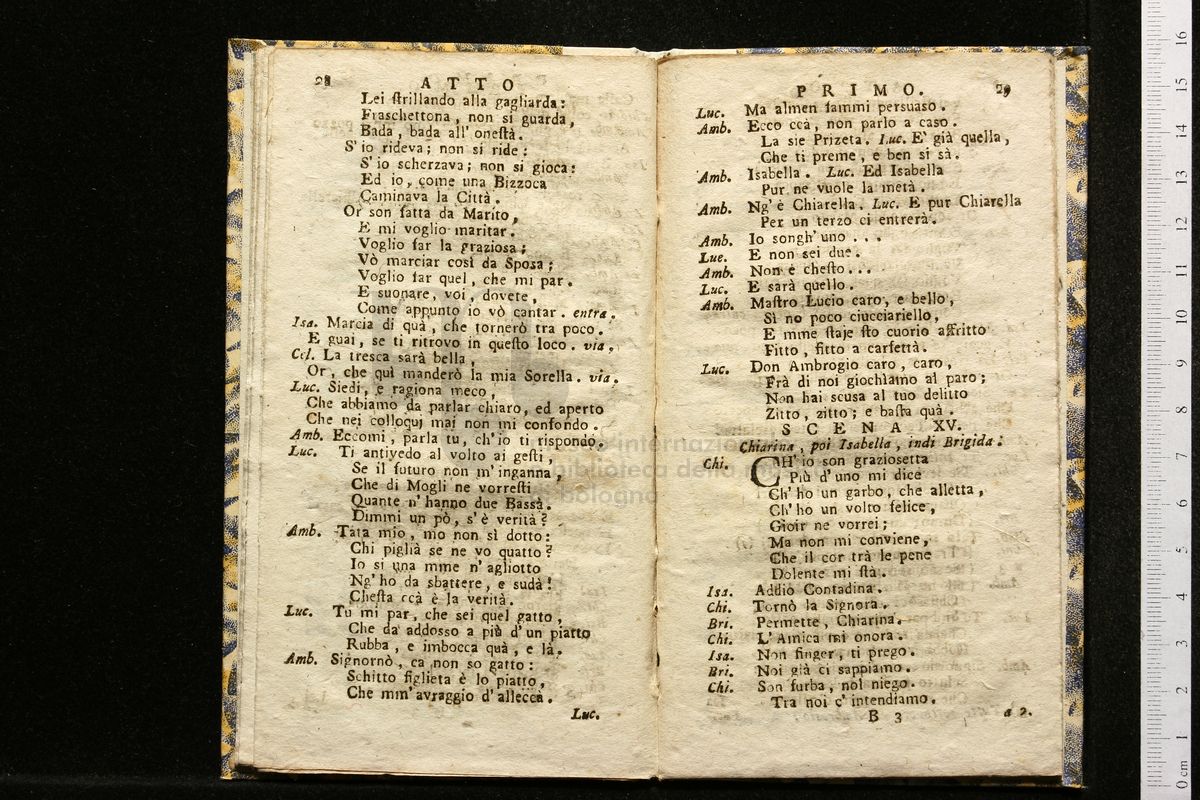 28 ATTO
Lei ſtrillando alla gagliarda:
Fraschettona, non si guarda,
Bada, bada all' oneſtà.
S' io rideva; non si ride:
S' io scherzava; non si gioca:
Ed io, come una Bizzoca
Caminava la Città.
Or son fatta da Marito,
E mi voglio maritar.
Voglio far la graziosa;
Vò marciar così da Sposa;
Voglio far quel, che mi par.
E suonare, voi, dovete,
Come appunto io vò cantar. entra.
Isa. Marcia di quà, che tornerò tra poco.
E guai, se ti ritrovo in queſto loco. via.
Cel. La tresca sarà bella,
Or, che quì manderò la mia Sorella. via.
Luc. Siedi, e ragiona meco,
Che abbiamo da parlar chiaro, ed aperto
Che nei colloquj mai non mi confondo.
Amb. Eccomi, parla tu, ch' io ti rispondo.
Luc. Ti antivedo al volto ai geſti,
Se il futuro non m' inganna,
Che di Mogli ne vorreſti
Quante n' hanno due Bassà.
Dimmi un pò, s' è verità?
Amb. Tata mio, mo non sì dotto:
Chi piglià se ne vo quatto?
Io si una mme n' agliotto
Ng' ho da sbattere, e sudà!
Cheſta ccà è la verità.
Luc. Tu mi par, che sei quel gatto,
Che dà addosso a più d' un piatto
Rubba, e imbocca quà, e là.
Amb. Signornò, ca non so gatto:
Schitto figlieta è lo piatto,
Che mm' avraggio d' alleccà.
Luc.
PRIMO. 29
Luc. Ma almen fammi persuaso.
Amb. Ecco ccà, non parlo a caso.
La sie Prizeta. Luc. E' già quella,
Che ti preme, e ben si sà.
Amb. Isabella. Luc. Ed Isabella
Pur ne vuole la metà.
Amb. Ng' è Chiarella. Luc. E pur Chiarella
Per un terzo ci entrerà.
Amb. Io songh' uno . . .
Lue. E non sei due.
Amb. Non è cheſto . . .
Luc. E sarà quello.
Amb. Maſtro Lucio caro, e bello,
Sì no poco ciucciariello,
E mme ſtaje ſto cuorio affritto
Fitto, fitto a carfettà.
Luc. Don Ambrogio caro, caro,
Frà di noi giochiamo al paro;
Non hai scusa al tuo delitto
Zitto, zitto; e baſta quà.
SCENA XV.
Chiarina, poi Isabella, indi Brigida:
Chi. CH' io son graziosetta
Più d' uno mi dice
Ch' ho un garbo, che alletta,
Ch' ho un volto felice,
Gioir ne vorrei;
Ma non mi conviene,
Che il cor trà le pene
Dolente mi ſtà.
Isa. Addio Contadina.
Chi. Tornò la Signora.
Bri. Permette, Chiarina.
Chi. L' Amica mi onora.
Isa. Non finger, ti prego.
Bri. Noi già ci sappiamo.
Chi. Son furba, nol niego.
Tra noi c' intendiamo.
B 3 a 2.
internazionale
biblioteca della musica
bologna
0 cm 1 2 3 4 5 6 7 8 9 10 11 12 13 14 15 16